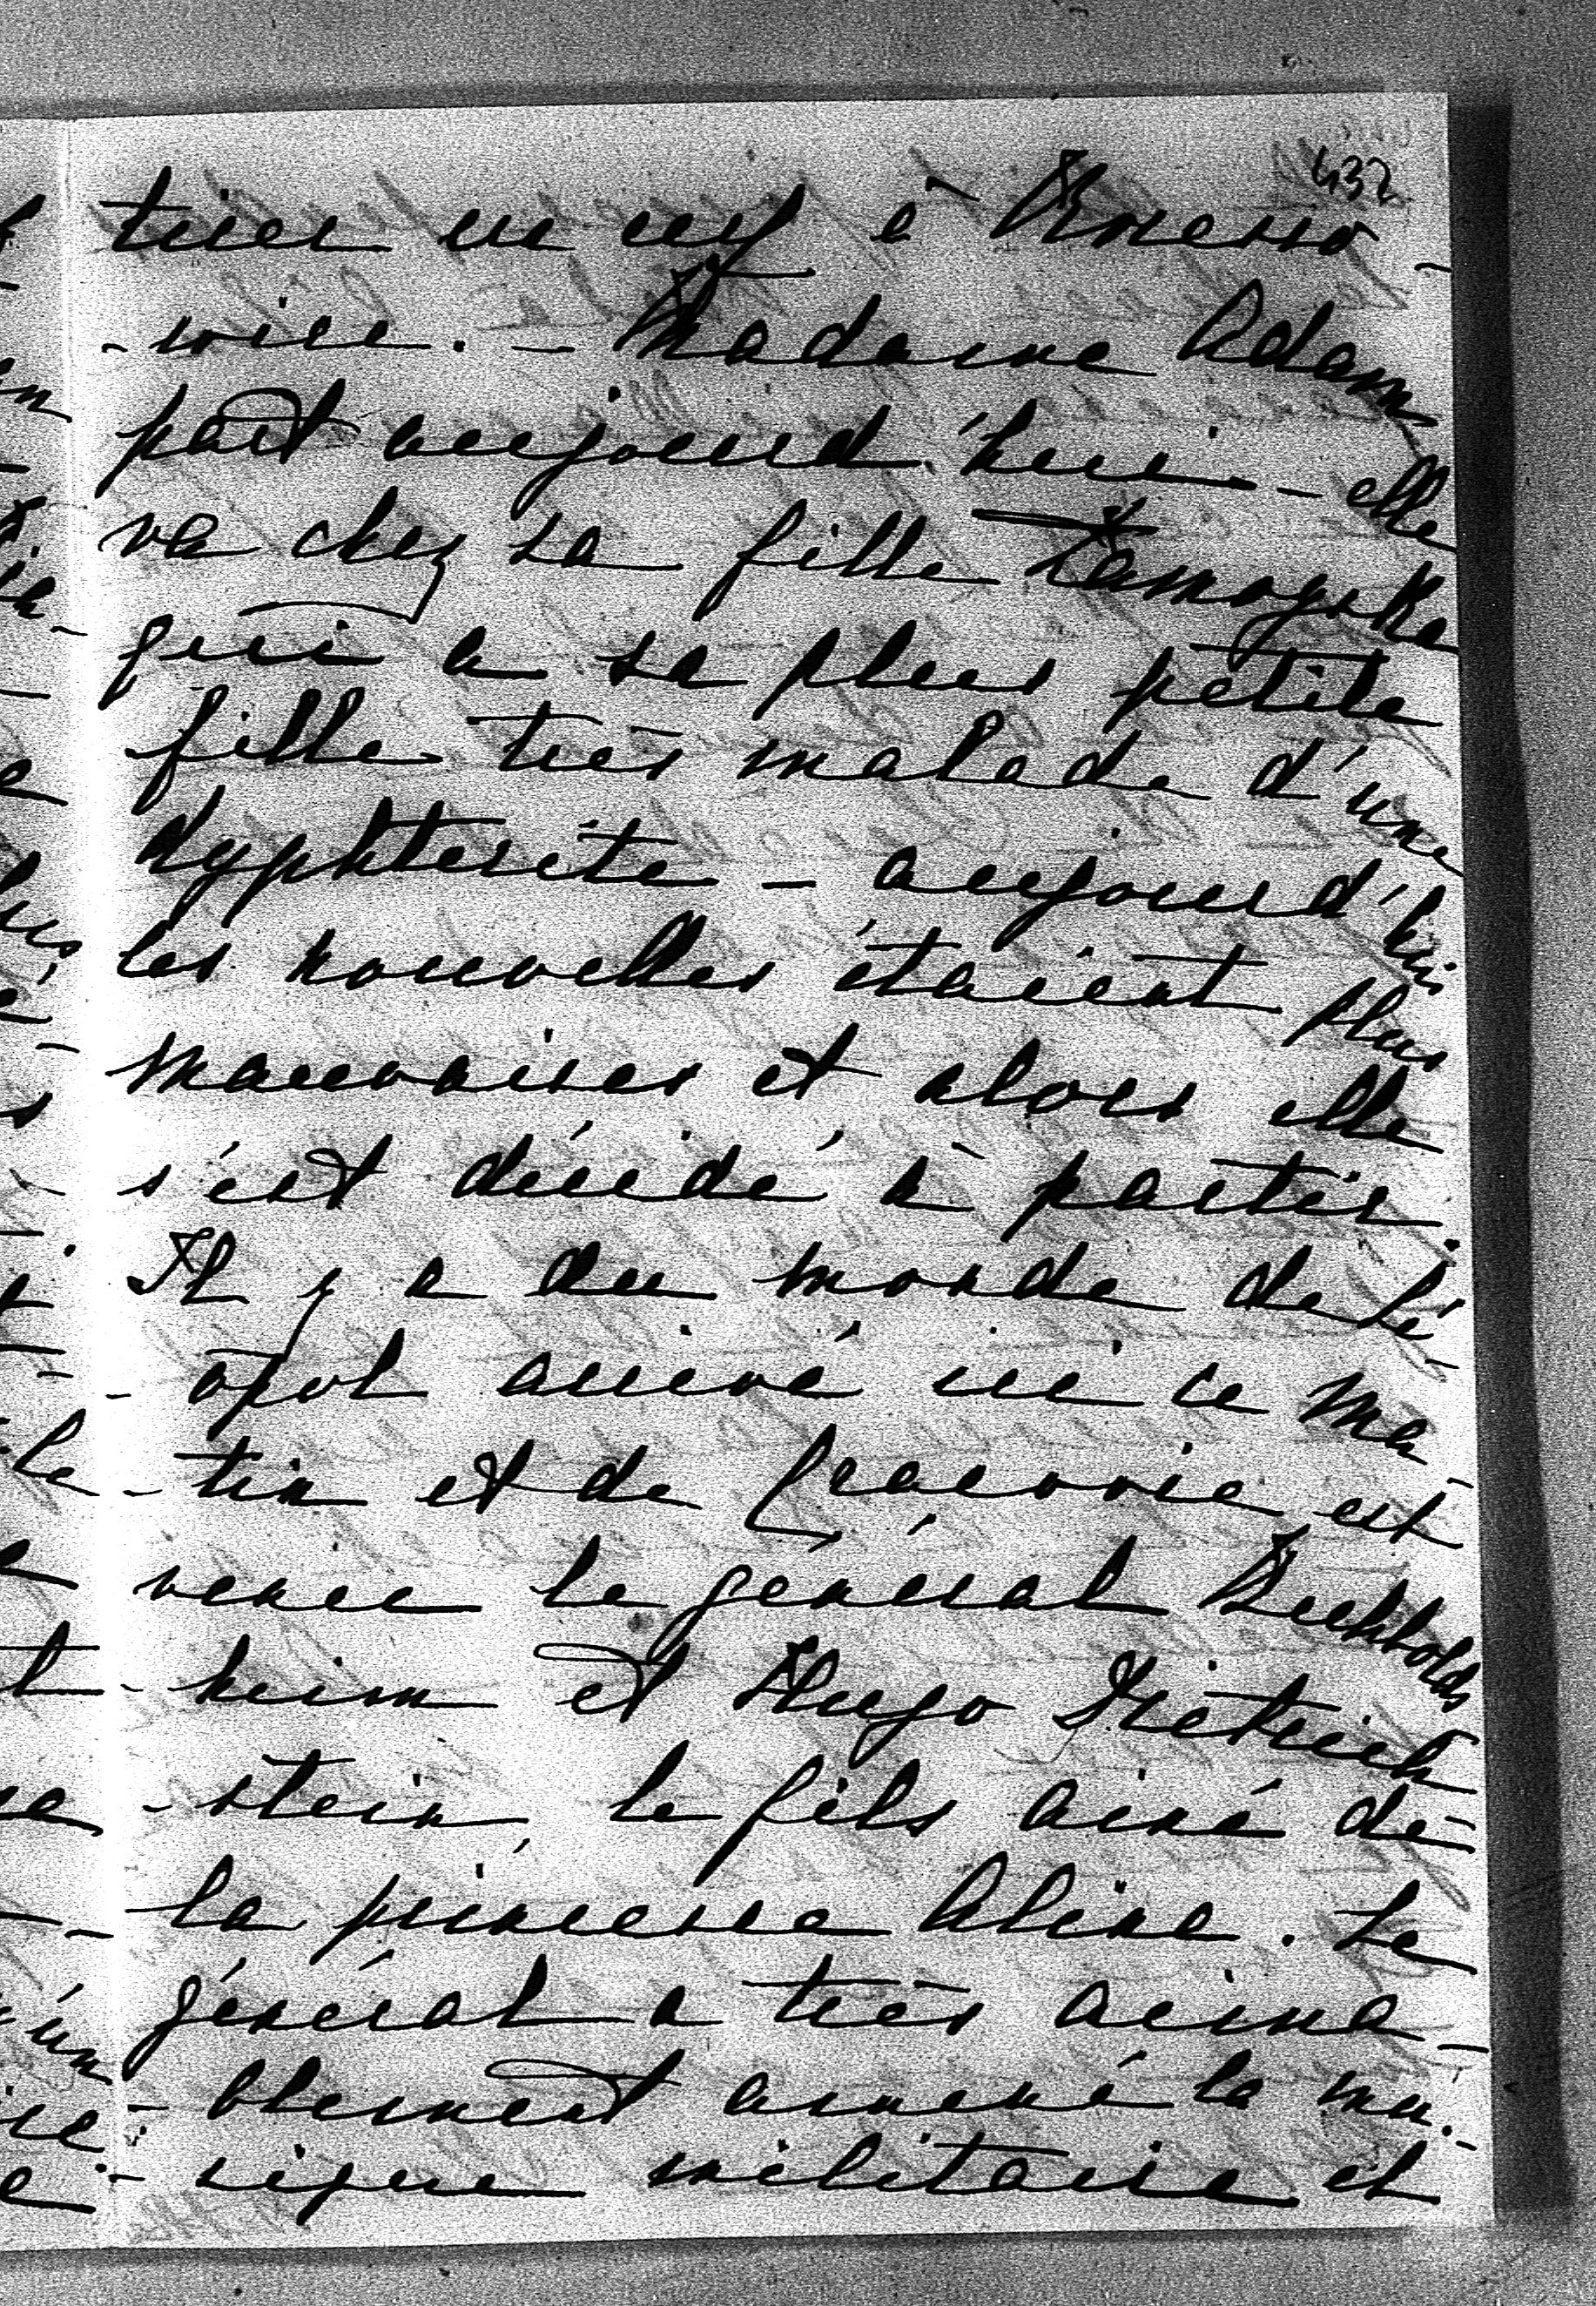 432
tirer un cerf à Krzeszo-
-wice. - Madame Adam
part aujourd'hui - elle
va chez sa fille Zamoyska
qui a sa plus petite
fille très malade d'une
dyphterite - aujourd'hui
les nouvelles étaient plus
mauvaises et alors elle
s'est décidé à partir.
Il y a du monde de Lé-
-opol arrivé ici ce ma-
-tin et de Cracovie est
venu le général
-heim et Hugo Dietrich
-stein, le fils ainé de
la princesse Aline. Le
général a très aima-
-blement amené la mu-
-sique militaire et